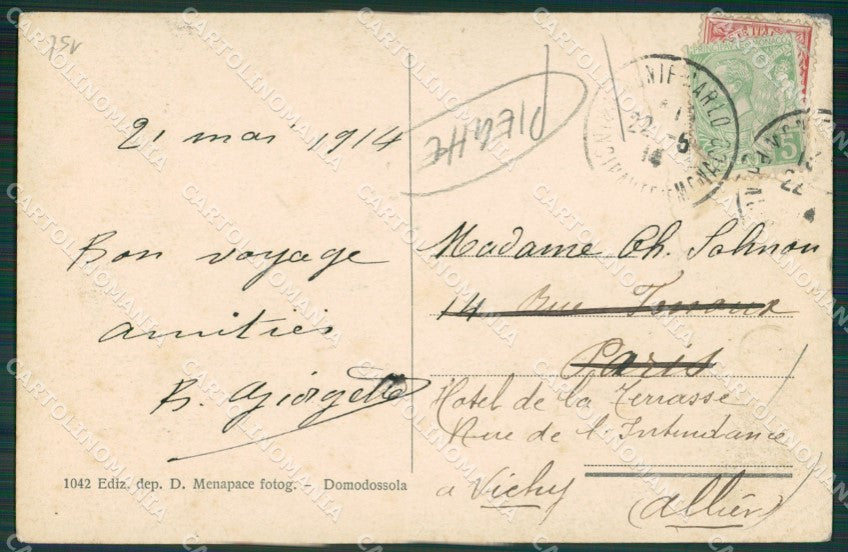 21 mai 1914
PIEGHE
MONTE-CARLO
22 -5
14
MONACO
5
22
Bon voyage
amitiés
B. Giorgetti
Madame Ch.
14 Rue
Paris
Hotel de la Terrasse
Rue de l'Intendance
a Vichy
(Allier)
1042 Ediz. dep. D. Menapace fotog. - Domodossola
CARTOLINOMANIA